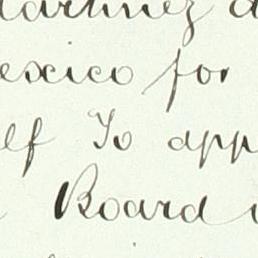 artinez a
exico for
elf To app
Board